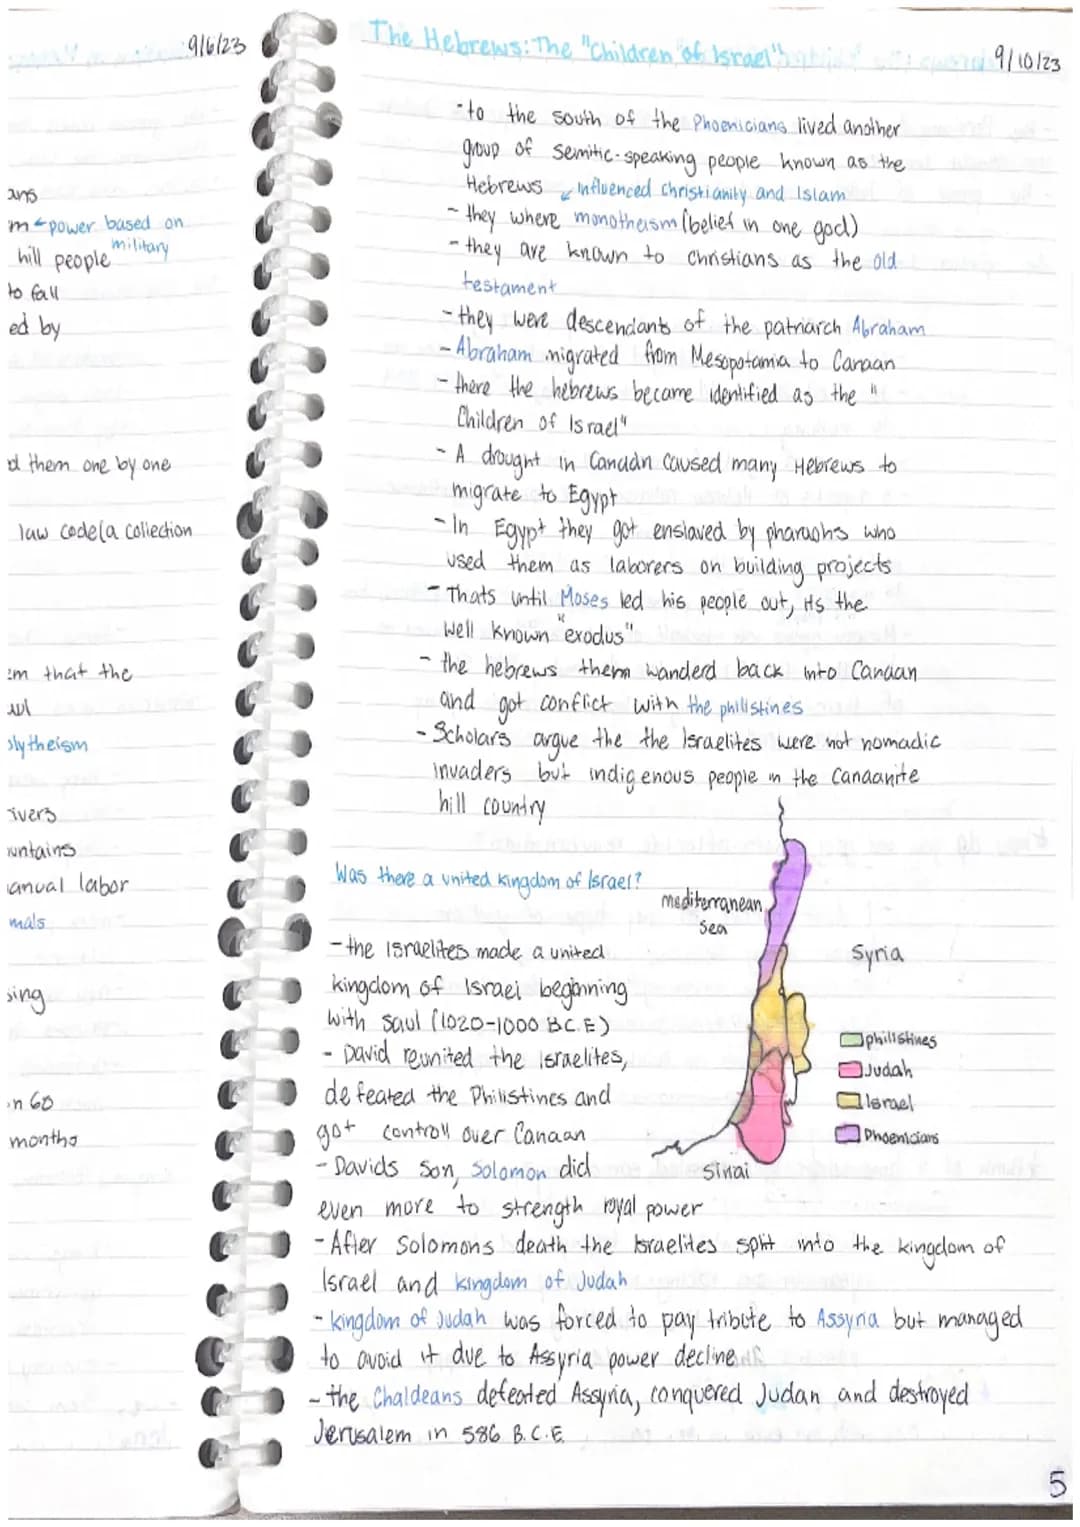 9/6/23
ans
m ←power based on
military
hill people
to fall
ed by
d them one by one
law code(a collection
em that the
lytheism
ivers
untains
anual labor
mals
sing
n 60
months
The Hebrews: The "Children of Israel"
9/10/23
- to the south of the Phoenicians lived another
group of Semitic-speaking people known as the
Hebrews ↙ influenced christianity and Islam
- they where monotheism (belief in one god)
- they are known to christians as the old
testament
- they were descendants of the patriarch Abraham
- Abraham migrated from Mesopotamia to Canaan
- there the hebrews became identified as the "
Children of Israel"
- A drought in Canaan caused many Hebrews to
migrate to Egypt
- In Egypt they got enslaved by pharaohs who
used them as laborers on building projects
- Thats until Moses led his people out, its the
well known "exodus"
- the hebrews them wanderd back into Canaan
and got conflict with the philistines
- Scholars argue the the Israelites were not nomadic
invaders but indigenous people in the Canaanite
hill country
Was there a united kingdom of Israel?
mediterranean
sea
Syria
- the Israelites made a united
kingdom of Israel beginning
with Saul (1020-1000 B.C.E)
- David reunited the Israelites,
defeated the Philistines and
got controll over Canaan
philistines
Judah
Israel
Phoenicians
Sinai
- Davids son, Solomon did
even more to strength royal power
- After Solomons death the Israelites split into the kingdom of
Israel and kingdom of Judah
- kingdom of Judah was forced to pay tribute to Assyria but managed
to avoid it due to Assyria power decline
- the Chaldeans defeated Assyria, conquered Judah and destroyed
Jerusalem in 586 B.C.E.
5